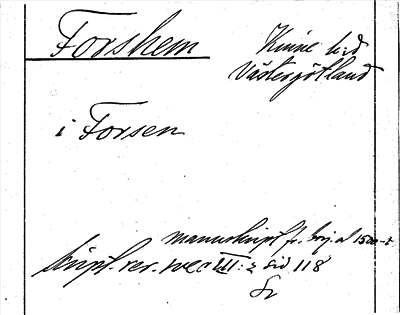 Forshem
Kinne hd
Västergötland
i Forsen
manuskript fr. börj. af 1500-t
Script. rer. svec III:2 sid 118